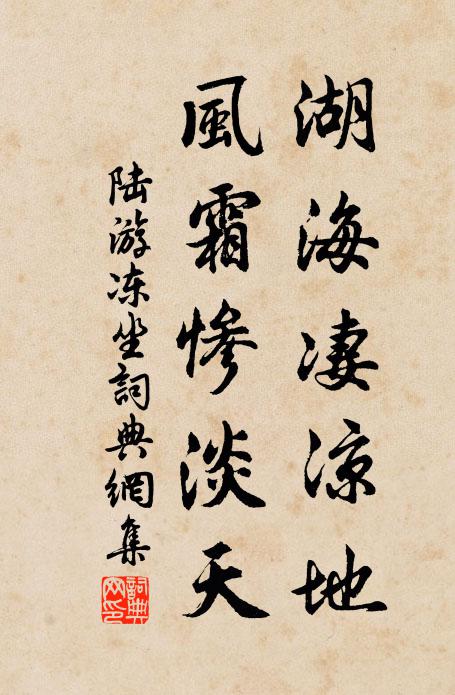 湖海凄凉地
風霜惨淡天
陆游冻坐詞典網集
詞典網印